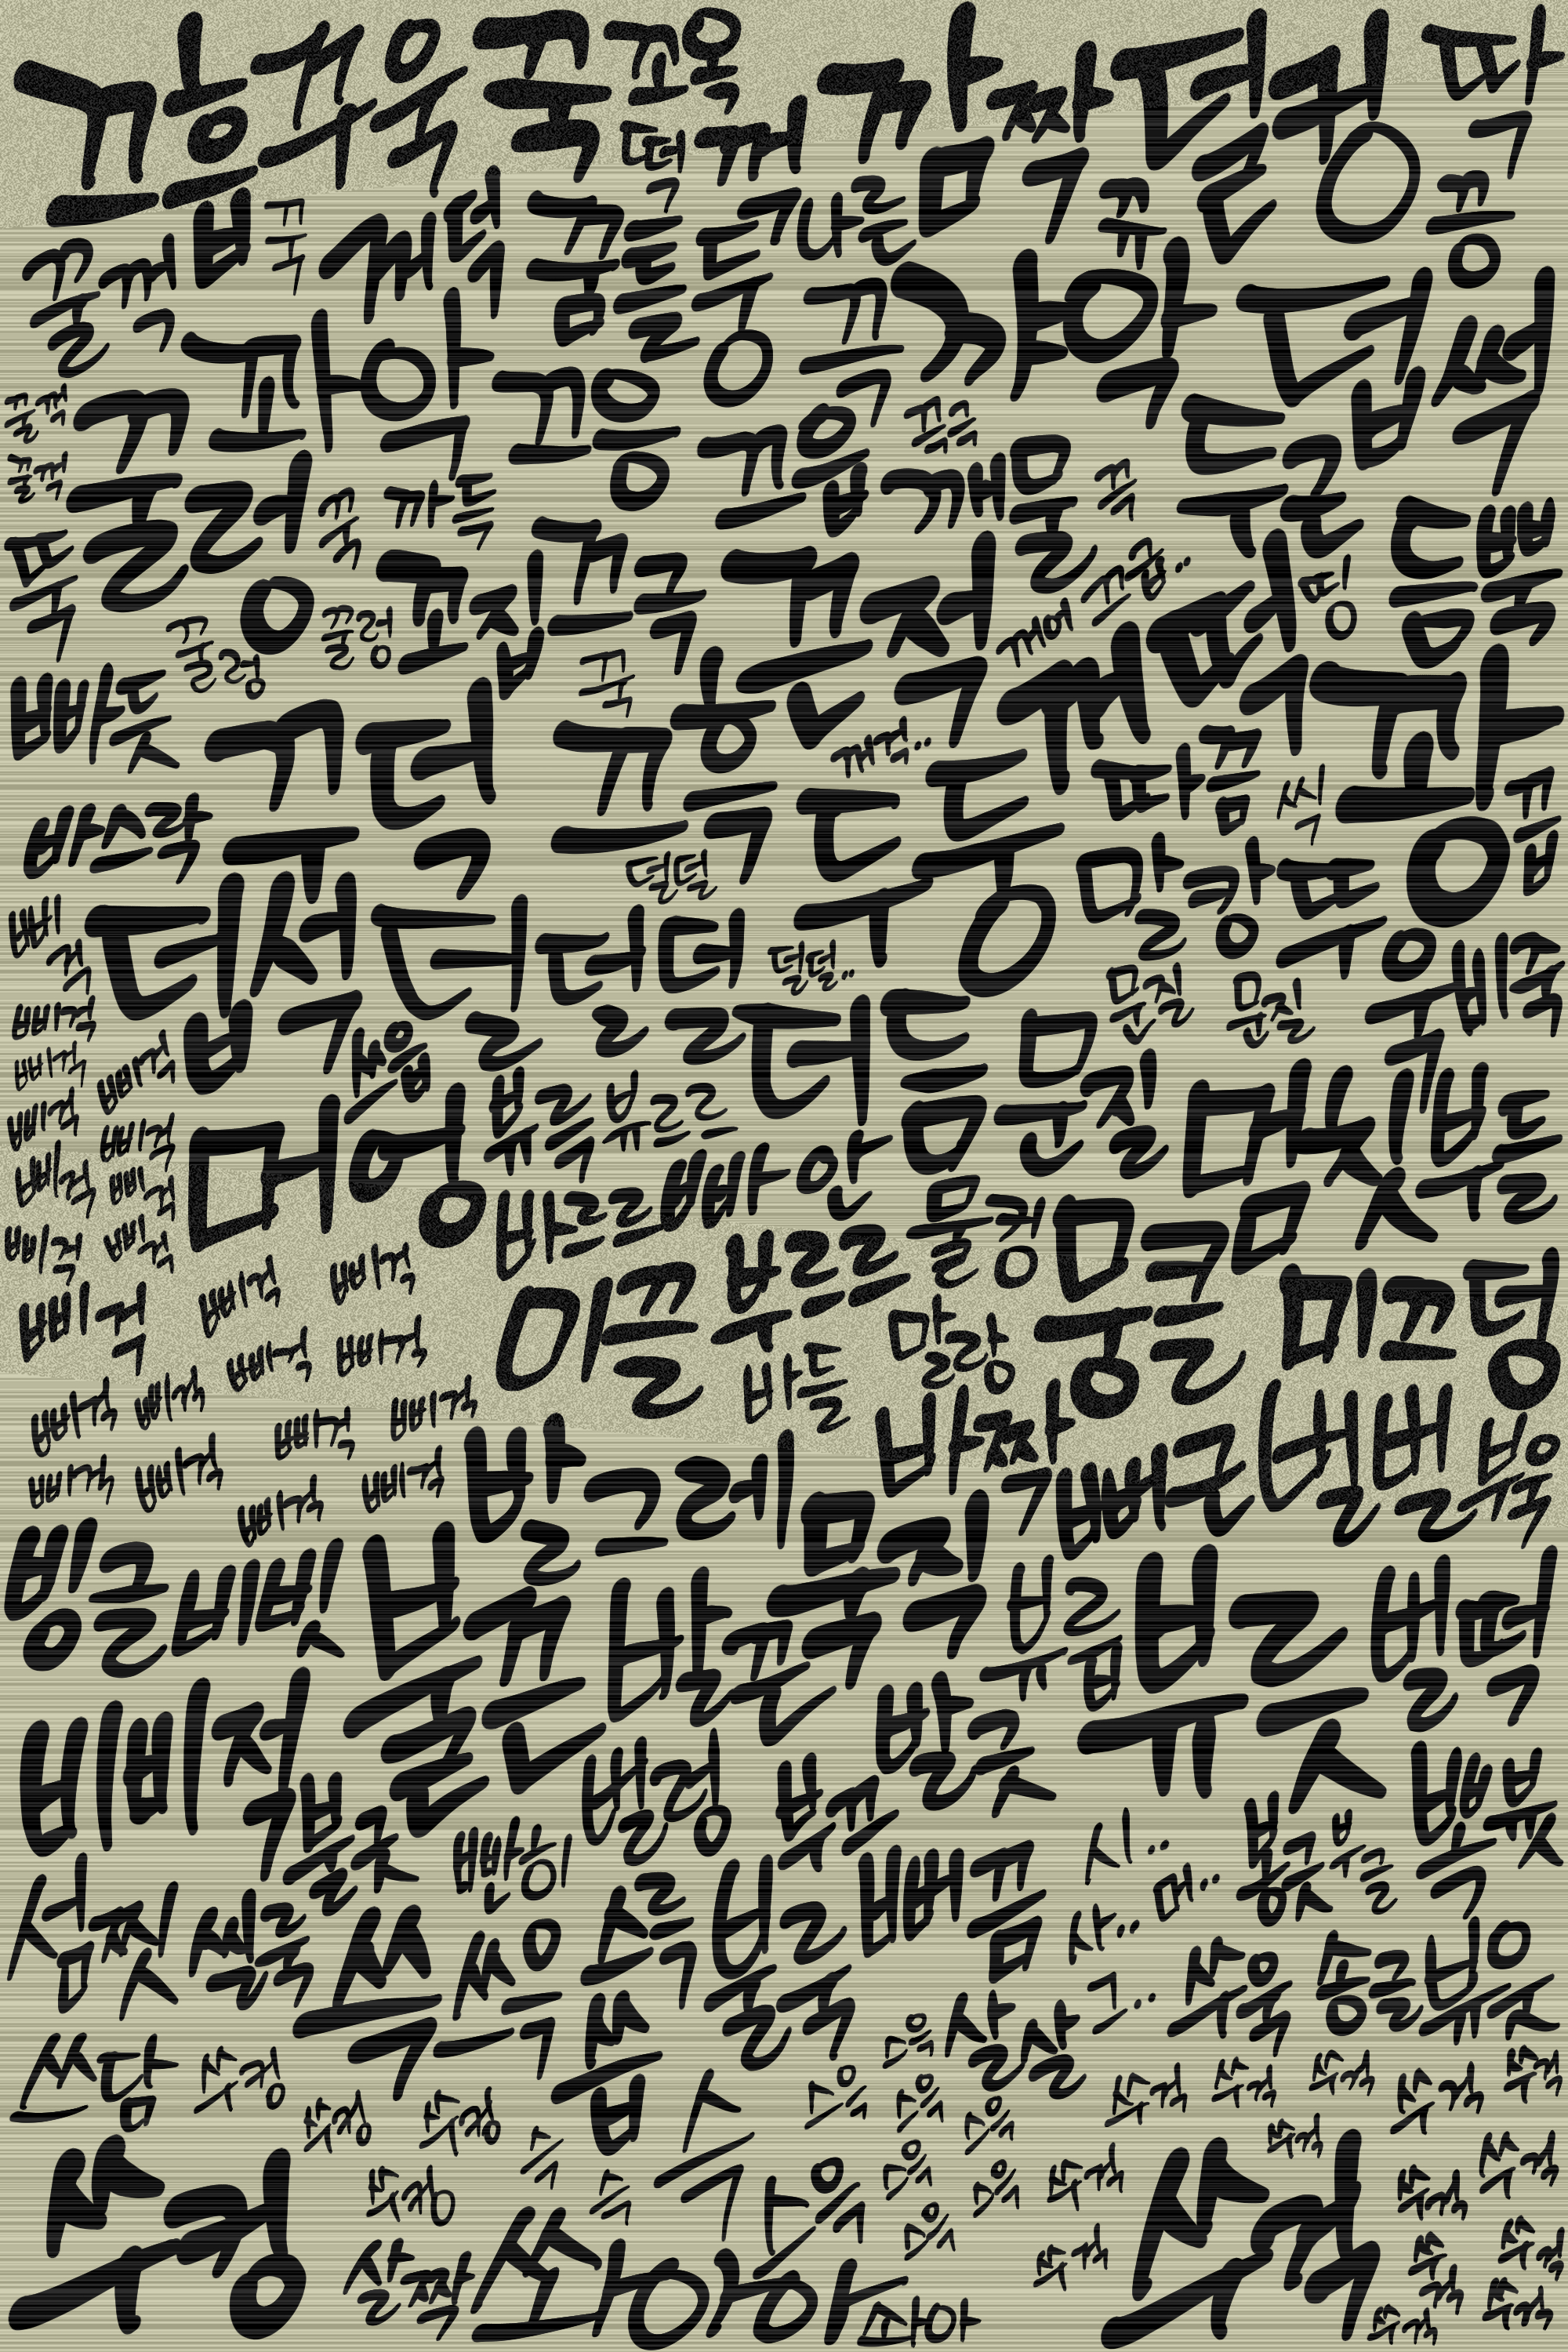 끄흐끼욱 꾹 꼬옥 깜짝 덜컹 딱
떡 꺼
꿀꺽 법 꾹 께 덕 꿈틀 둥 ㄱ나른 뀨 끙
꽈악 끄윽 꺄악 덥썩
꿀꺽 꿀렁 끄응 끄읍 끅극 두근
꿀꺽 꾹 까득 깨물 끅
뚝 꼬집 끄극 끈적 끄급.. 띵 듬뿍
꿀렁 꿀렁 꾹 꺼어 꺼떡 꽈앙
빠듯 꾸덕 끄흑 꺼걱.. 두둥 따끔 씩 끕
바스락 덜덜 말캉 뚜욱
삐걱 덥석 덜덜덜 덜덜.. 비죽
문질 문질
삐걱 쓰읍 더듬 문질
삐걱 삐걱 뷰륵 뷰르르 멈칫 부들
삐걱 삐걱 머엉 바르르 빠안
삐걱 삐걱 물컹 뭉클
삐걱 삐걱 미끌 부르르 미끄덩
삐걱 삐걱 삐걱 말랑
삐걱 삐걱 바들
삐걱 삐걱 삐걱 삐걱 바짝 뻐근 벌벌 뷰욱
삐걱 삐걱 삐걱 삐걱 발그레
빙글 비빗 불뀬 발끈 묵직 뷰릅 뷰르읏 벌떡
비비적 불긋 벌렁 부끄 발긋
빤히 시.. 봉긋 부글 뽁 븃
섬찟 씰룩 쓱 쓰윽 스륵 불룩 뻐끔 사.. 머..
쓰담 쑤컹 씁 스윽 살살 그.. 쑤욱 송글 뷰읏
쑤컹 쑤컹 슥 스윽 스윽 스윽 쑤걱 쑤걱 쑤걱 쑤걱 쑤걱
쑤컹 쑤컹 슥 슥 스윽 스윽 스윽 쑤걱 쑤걱 쑤걱 쑤걱 쑤걱
살짝 쏴아아 솨아 스윽 쑤걱 쑤걱 쑤걱 쑤걱 쑤걱